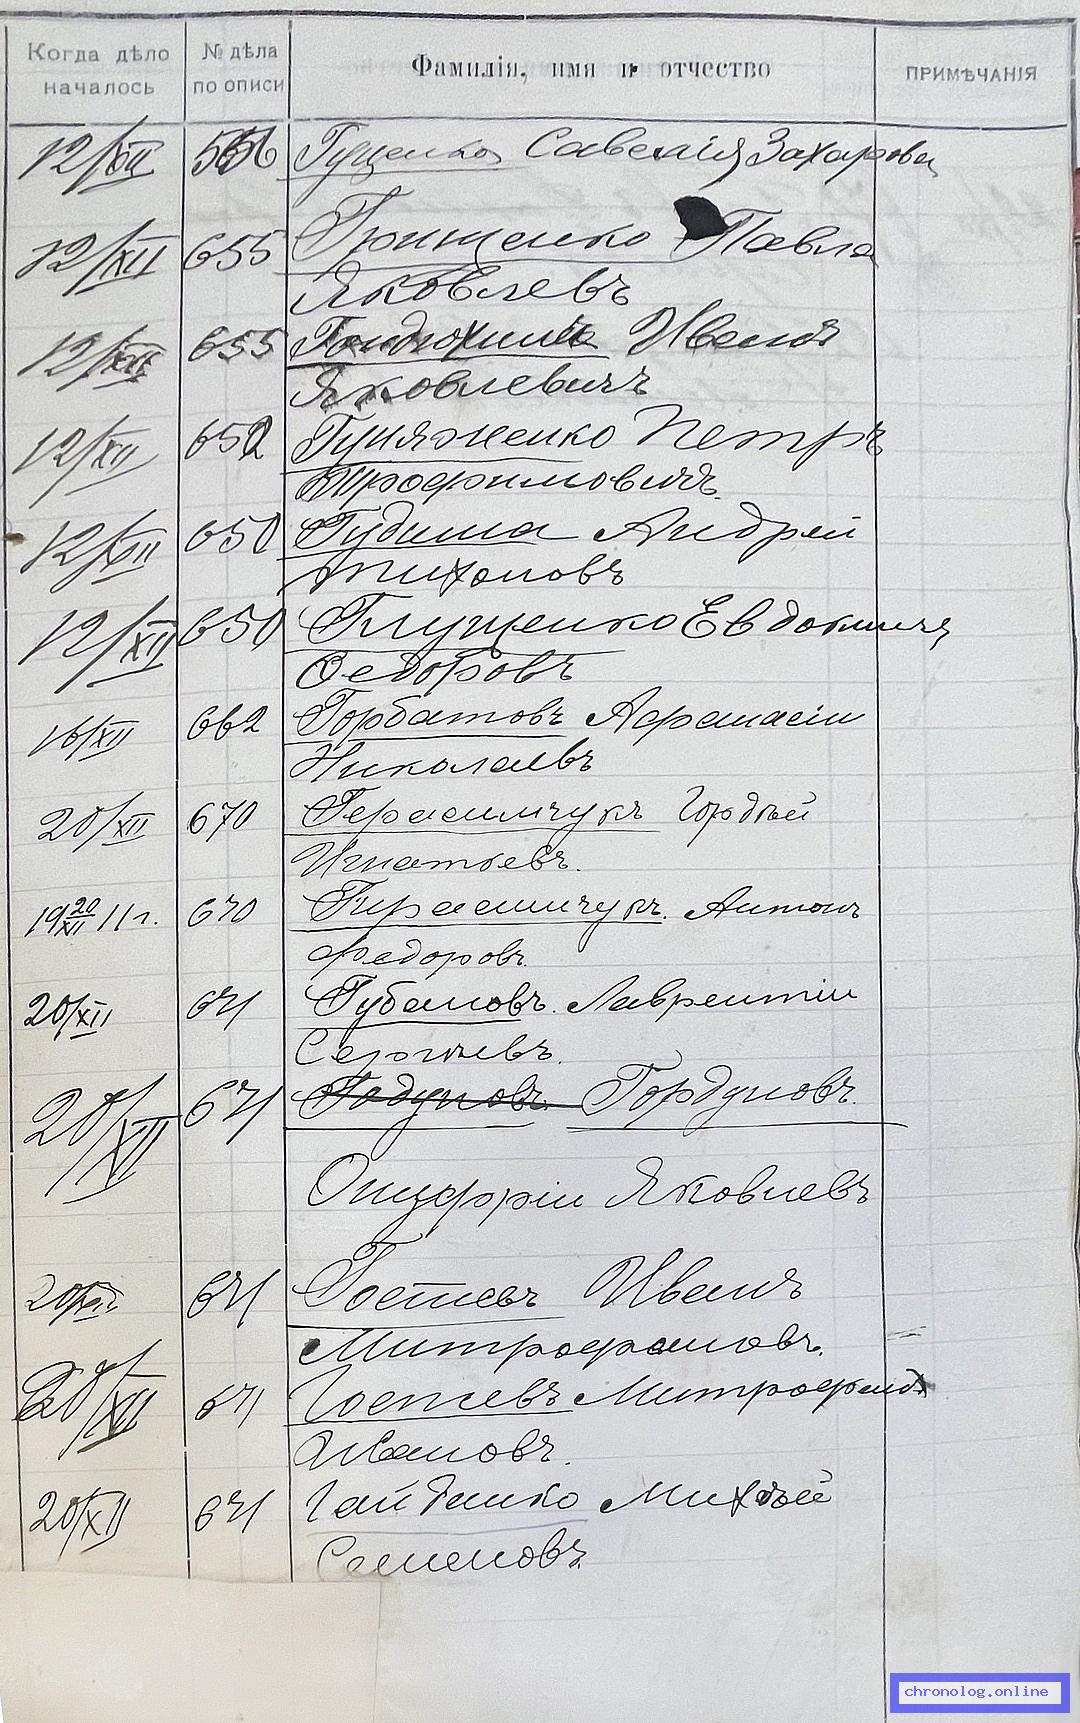 Когда дѣло началось
№ дѣла по описи
Фамилія, имя и отчество
ПРИМѢЧАНІЯ
12/XII 556 Гуценко Савелія Захарова
12/XII 655 Грищенко Павла
Яковлевъ
12/XII 655 Ивана
Яковлевичъ
12/XII 652 Петръ
Трофимовичъ
12/XII 650 Гудима Андрей
Тихоновъ
12/XII 650 Глущенко Евдокимъ
Ѳедоровъ
16/XII 662 Горбатовъ Афанасіи
Николаевъ
20/XII 670 Герасимчукъ Гордѣй
Игнатьевъ.
19 20/XII 11 г. 670 Герасимчукъ. Антонъ
Федоровъ.
20/XII 671 Губановъ. Лаврентіи
Сергѣевъ.
20/XII 671 Годуновъ. Гордуновъ.
Онуфріи Яковлевъ
20/XII 671 Гостевъ Иванъ
Митрофановъ.
20/XII 671 Гостевъ Митрофанъ
Ивановъ.
20/XII 671 Гайденко Михѣй
Семеновъ.
chronolog.online